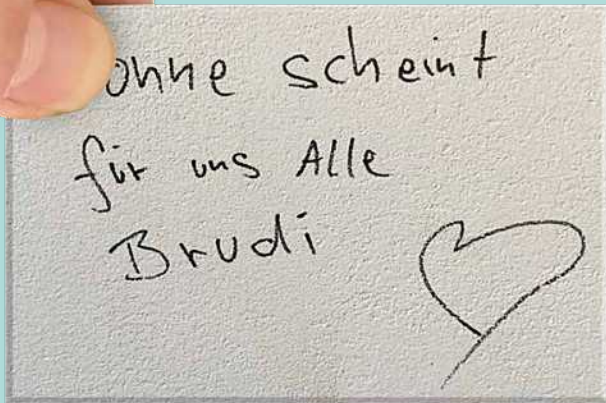 onne scheint
für uns Alle
Brudi